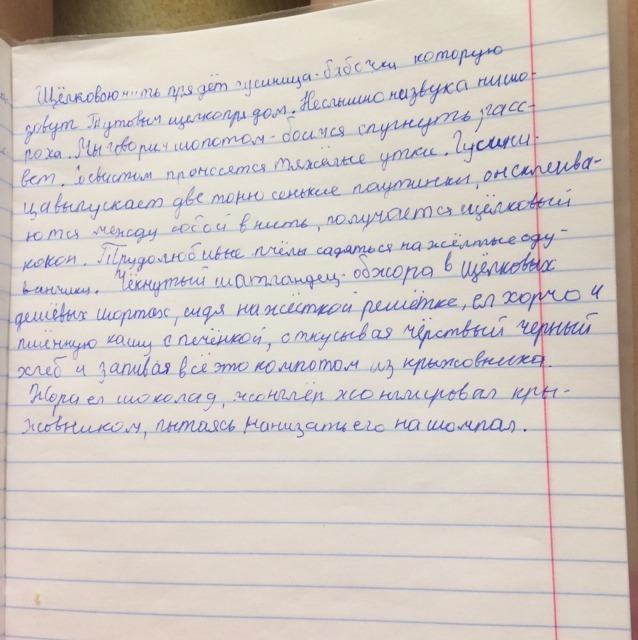 Щёлковою нить прядёт гусиница-бабочки которую
зовут Тутовым щелкопрядом. Неслышно назвука нишо-
роха. Мы говорим шопотом-боимся спугнуть расс-
вет. Ссвистом проносятся тяжёлые утки. Гусини-
ца выпускает две тонюсенькие паутинки, он склеива-
ются между собой в нить, получается щёлковый
кокон. Трудолюбивые пчёлы садяться на жёлтые оду-
ванчики. Чёкнутый шатландец-обжора в щёлковых
дешёвых шортах, сидя на жёсткой решётке, ел харчо и
пшённую кашу с печёнкой, откусывая чёрствый черный
хлеб и запивая всё это компотом из крыжовника.
Жора ел шоколад, жонглёр жонглировал кры-
жовником, пытаясь нанизать его на шомпал.